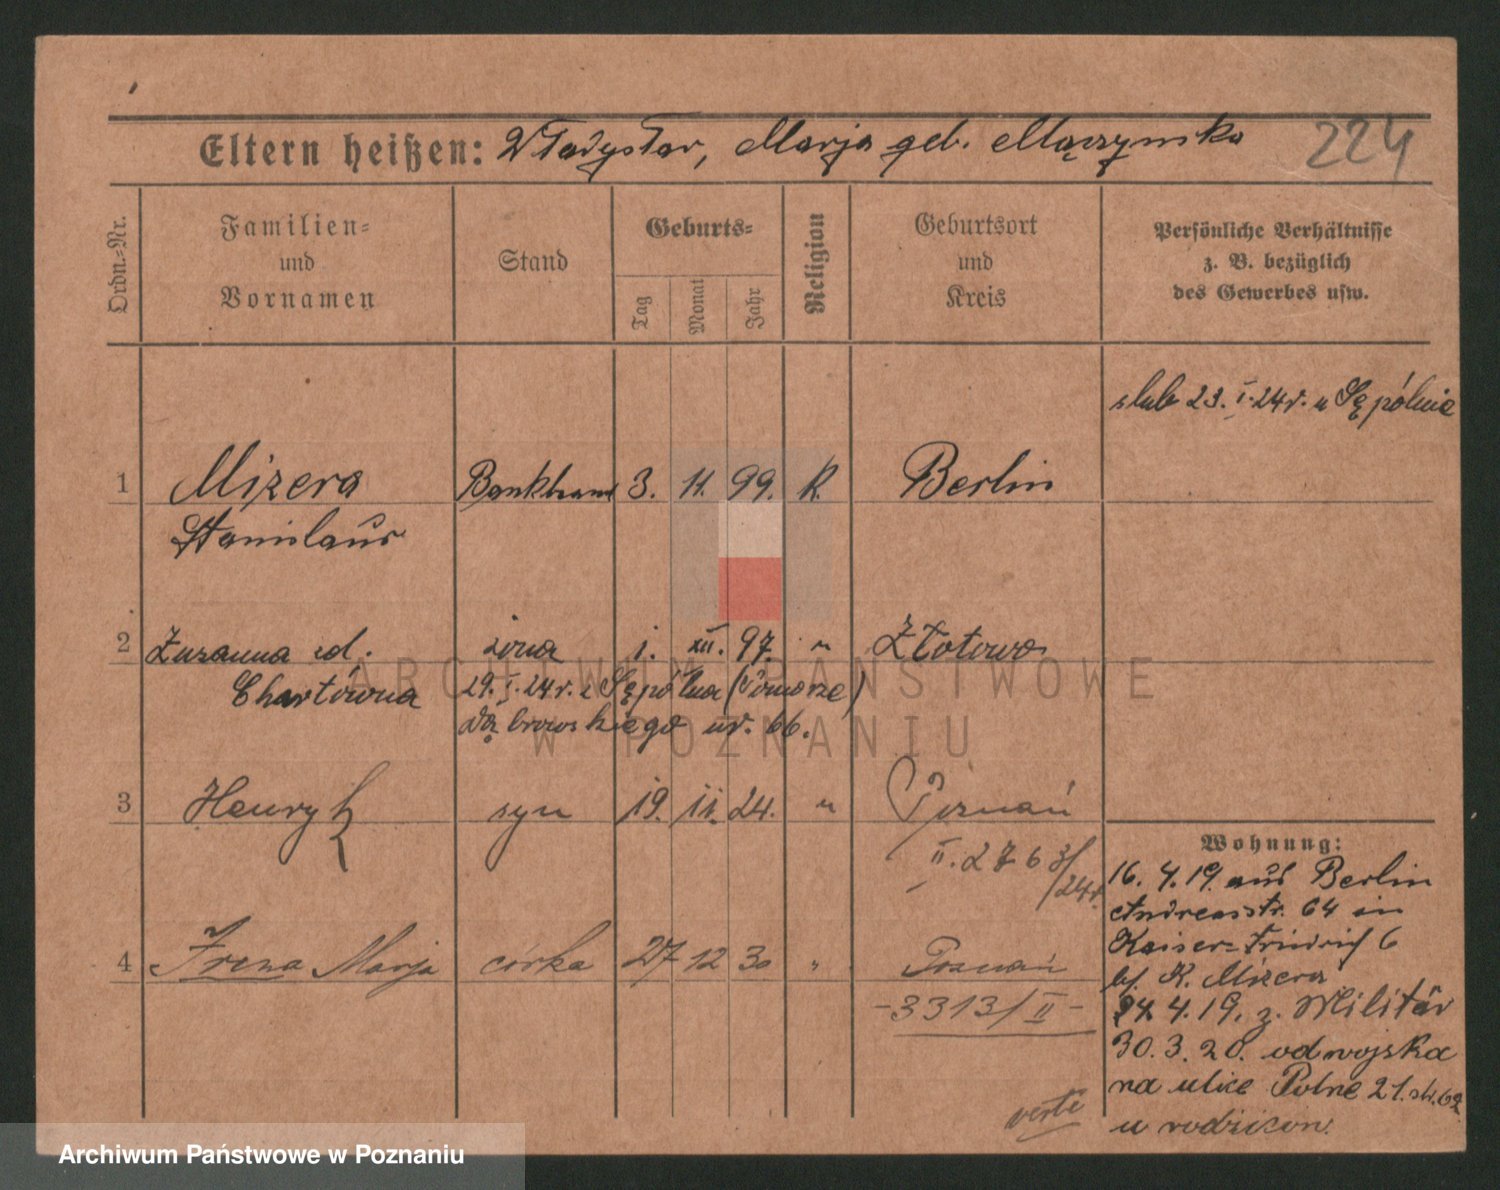 Eltern heißen: Władysław, Marja geb. Mączyńska
224
Ordn.-Nr.
Familien-
und
Vornamen
Stand
Geburts-
Tag
Monat
Jahr
Religion
Geburtsort
und
Kreis
Persönliche Verhältnisse
z. B. bezüglich
des Gewerbes usw.
ślub 23. I. 24 r. w Sępólnie
1 Mizera 3. 11. 99. K. Berlin
Stanislaus
2 Zuzanna żona 1. XII. 97. " Złotowo
29. I. 24 r. z Sępólna (Pomorze)
Dąbrowskiego nr. 66.
3 Henryk syn 19. 11. 24. " Poznań
II. 2763/24 r.
4 Irena Marja córka 27 12 30 " Poznań
- 3313/II -
verte
Wohnung:
16. 4. 19. aus Berlin
Andreasstr. 64 in
Kaiser-Friedrich 6
bf. K. Mizera
24. 4. 19. z. Militär
30. 3. 20. od wojska
na ulicę Polne 21. str. 62
u rodziców.
ARCHIWUM PAŃSTWOWE
W POZNANIU
Archiwum Państwowe w Poznaniu